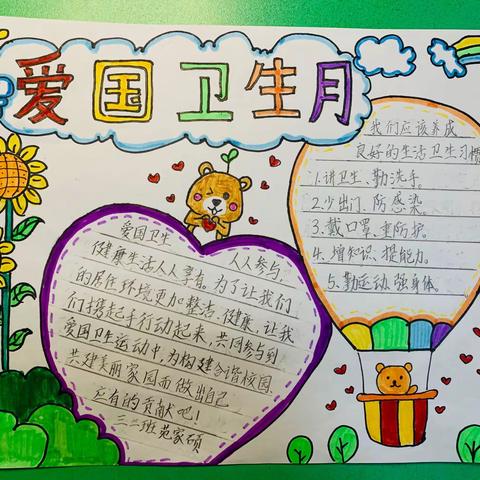 爱国卫生月
爱国卫生 人人参与,
健康生活人人享有。为了让我们
的居住环境更加整洁、健康,让我
们携起手行动起来,共同参与到
爱国卫生运动中,为构建合谐校园
共建美丽家园而做出自己
应有的贡献吧!
三二班苑家硕
我们应该养成
良好的生活卫生习惯
1.讲卫生、勤洗手。
2.少出门、防感染。
3.戴口罩、重防护。
4.增知识、提能力。
5.勤运动、强身体。